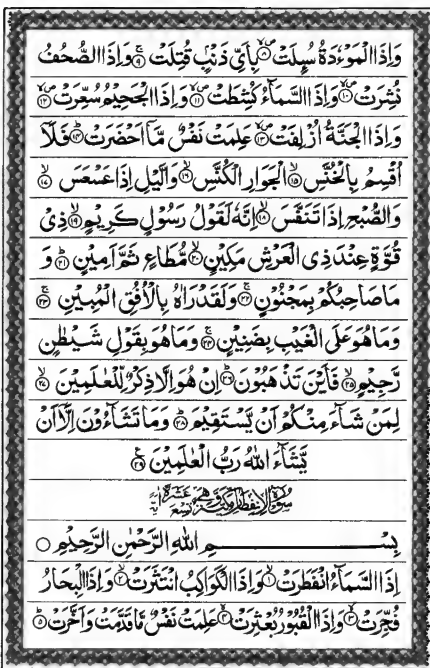 وَاِذَا الْمَوْءٗدَةُ سُىِٕلَتْ ۪ۙ۸ بِاَىِّ ذَنْۢبٍ قُتِلَتْ ۚ۹ وَاِذَا الصُّحُفُ
نُشِرَتْ ۪ۙ۱۰ وَاِذَا السَّمَآءُ كُشِطَتْ ۪ۙ۱۱ وَاِذَا الْجَحِيْمُ سُعِّرَتْ ۪ۙ۱۲
وَاِذَا الْجَنَّةُ اُزْلِفَتْ ۪ۙ۱۳ عَلِمَتْ نَفْسٌ مَّاۤ اَحْضَرَتْ ؕ۱۴ فَلَاۤ
اُقْسِمُ بِالْخُنَّسِ ۙ۱۵ الْجَوَارِ الْكُنَّسِ ۙ۱۶ وَالَّيْلِ اِذَا عَسْعَسَ ۙ۱۷
وَالصُّبْحِ اِذَا تَنَفَّسَ ۙ۱۸ اِنَّهٗ لَقَوْلُ رَسُوْلٍ كَرِيْمٍ ۙ۱۹ ذِىْ
قُوَّةٍ عِنْدَ ذِى الْعَرْشِ مَكِيْنٍ ۙ۲۰ مُّطَاعٍ ثَمَّ اَمِيْنٍ ؕ۲۱ وَ
مَا صَاحِبُكُمْ بِمَجْنُوْنٍ ۚ۲۲ وَلَقَدْ رَاٰهُ بِالْاُفُقِ الْمُبِيْنِ ۚ۲۳
وَمَا هُوَ عَلَى الْغَيْبِ بِضَنِيْنٍ ۚ۲۴ وَمَا هُوَ بِقَوْلِ شَيْطٰنٍ
رَّجِيْمٍ ۙ۲۵ فَاَيْنَ تَذْهَبُوْنَ ؕ۲۶ اِنْ هُوَ اِلَّا ذِكْرٌ لِّلْعٰلَمِيْنَ ۙ۲۷
لِمَنْ شَآءَ مِنْكُمْ اَنْ يَّسْتَقِيْمَ ؕ۲۸ وَمَا تَشَآءُوْنَ اِلَّاۤ اَنْ
يَّشَآءَ اللّٰهُ رَبُّ الْعٰلَمِيْنَ ۲۹
سُوْرَةُ الْاِنْفِطَارِ مَكِّيَّةٌ وَّهِىَ تِسْعَ عَشْرَةَ اٰيَةً
بِسْمِ اللّٰهِ الرَّحْمٰنِ الرَّحِيْمِ
اِذَا السَّمَآءُ انْفَطَرَتْ ۙ۱ وَاِذَا الْكَوَاكِبُ انْتَثَرَتْ ۙ۲ وَاِذَا الْبِحَارُ
فُجِّرَتْ ۙ۳ وَاِذَا الْقُبُوْرُ بُعْثِرَتْ ۙ۴ عَلِمَتْ نَفْسٌ مَّا قَدَّمَتْ وَاَخَّرَتْ ؕ۵